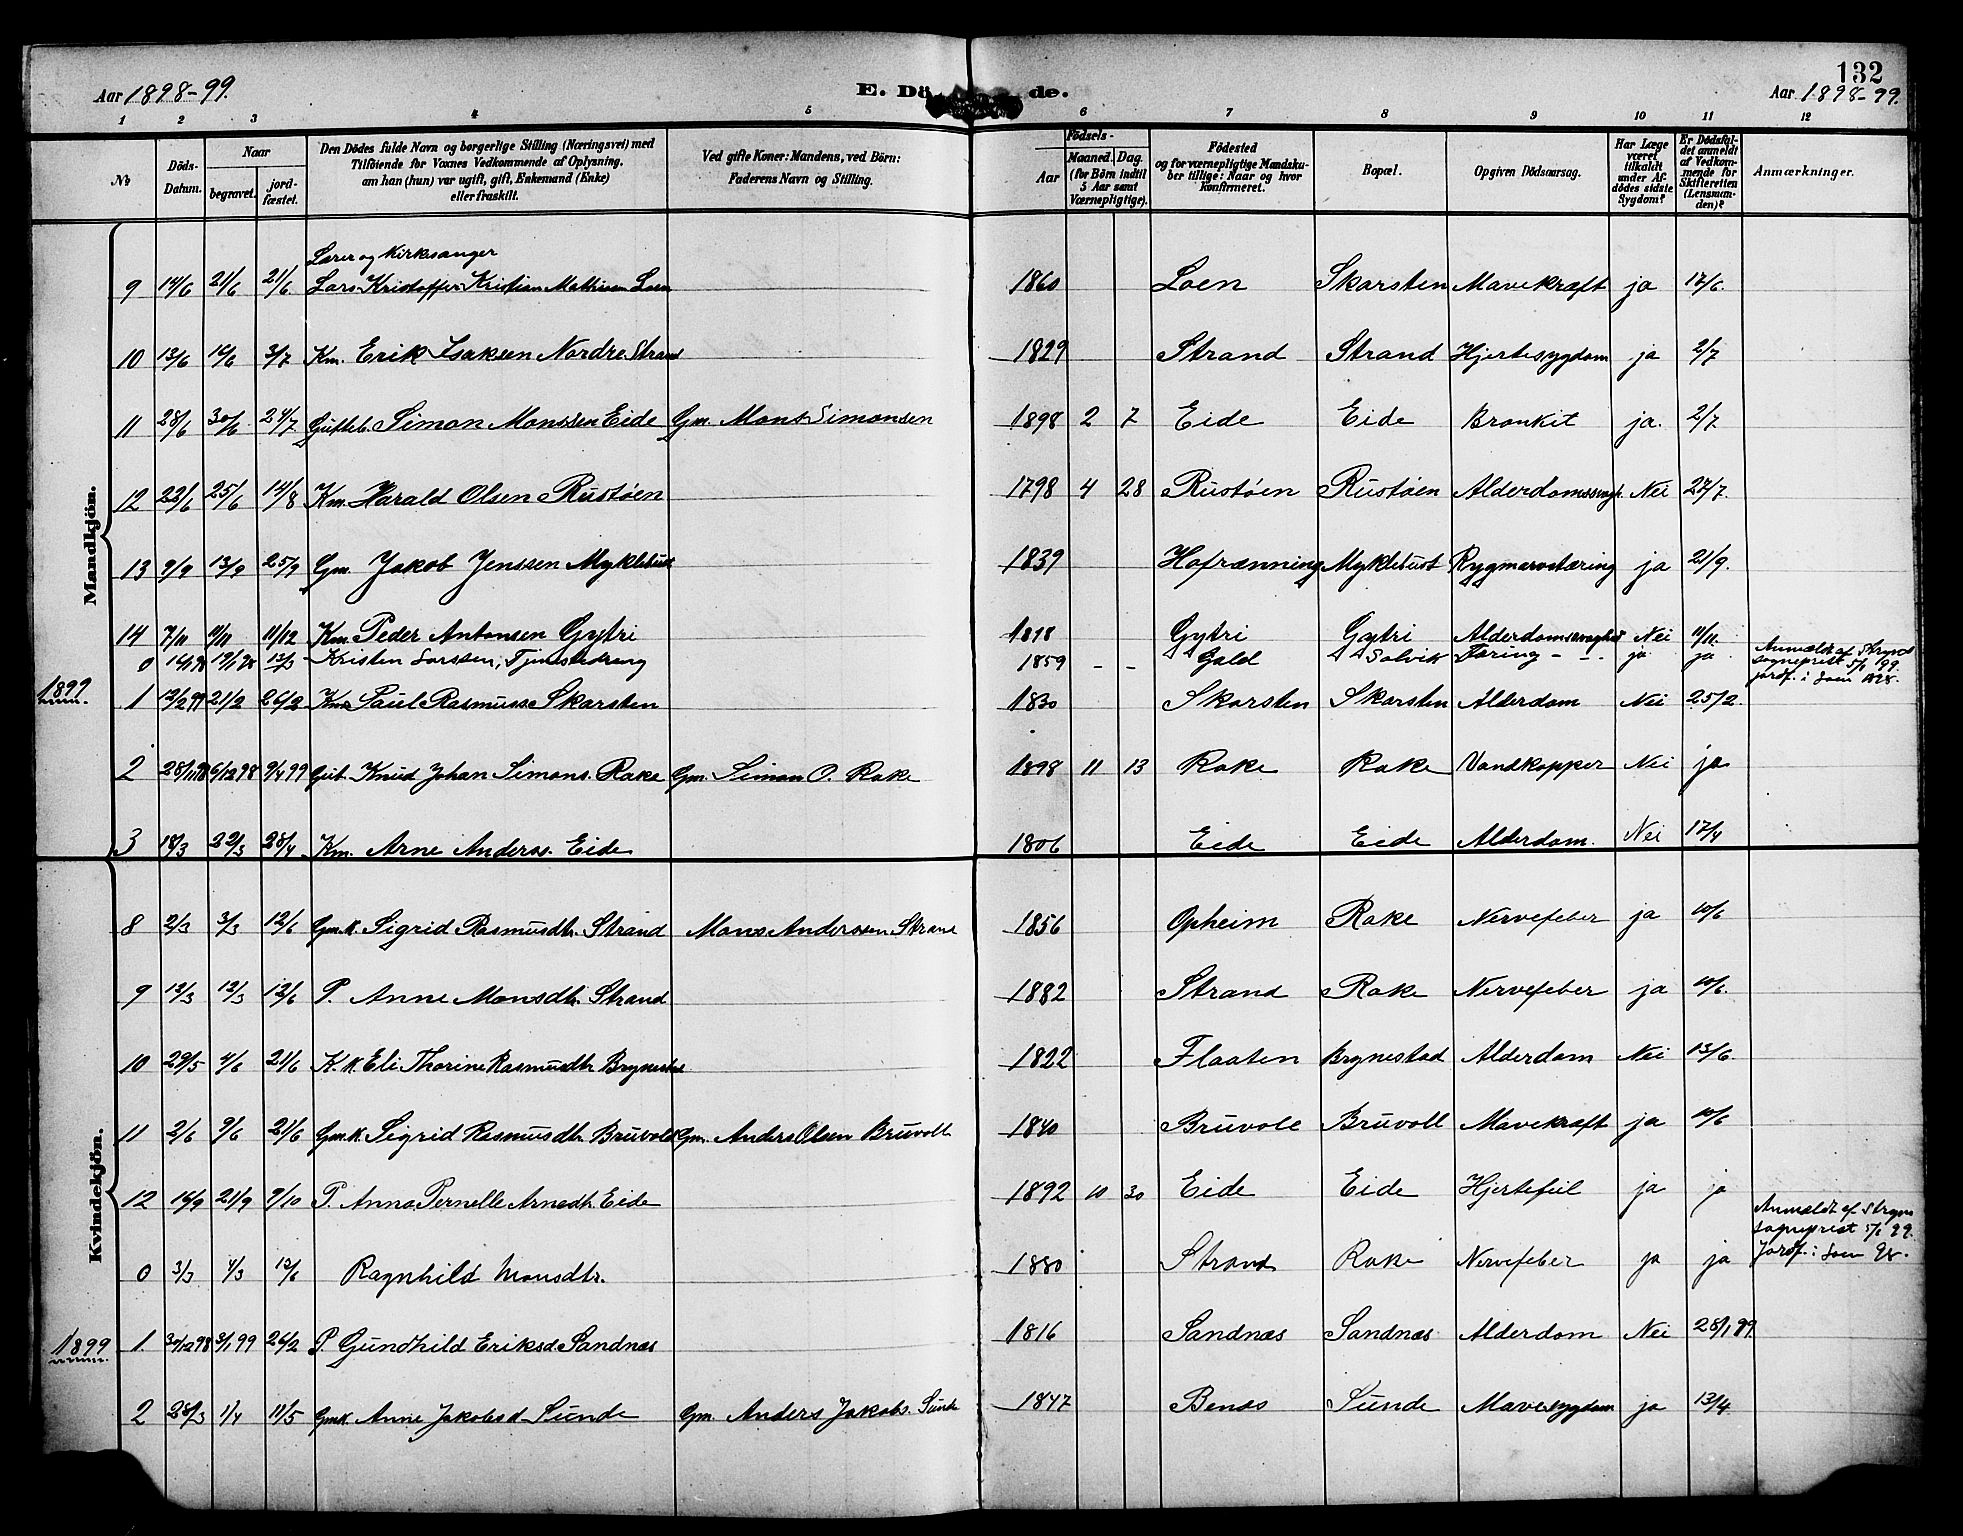 132
Aar 1898-99.
E. Dö de.
Aar 1898-99.
1 2 3 4 5 6 7 8 9 10 11 12
No
Döds-Datum.
Naar
begravet.
jord-fæstet.
Den Dödes fulde Navn og borgerlige Stilling (Næringsvei) med
Tilföiende for Voxnes Vedkommende af Oplysning,
om han (hun) var ugift, gift, Enkemand (Enke)
eller fraskilt.
Ved gifte Koner: Mandens, ved Börn:
Faderens Navn og Stilling.
Födsels-
Aar
Maaned. Dag.
(for Börn indtil
5 Aar samt
Værnepligtige).
Födested
og for værnepligtige Mandsku-
ber tillige: Naar og hvor
konfirmeret.
Bopæl.
Opgiven Dödsaarsag.
Har Læge
været
tilkaldt
under Af-
dödes sidste
Sygdom?
Er Dödsfal-
det anmeldt
af Vedkom-
mende for
Skifteretten
(Lensman-
den)?
Anmærkninger.
Mandkjön.
Lærer og Kirksanger
9 14/6 21/6 21/6 Lars Kristoffer Kristian Mathisen Loen 1860 Loen Skarsten Mavekræft ja 17/6.
10 13/6 16/6 3/7 Km. Erik Isaksen Nordre Strand 1829 Strand Strand Hjertesygdom ja 2/7
11 28/6 30/6 24/7 Gutteb. Simon Monssen Eide Gm. Mons Simonsen 1898 2 7 Eide Eide Bronkit ja. 2/7
12 22/6 25/6 14/8 Km. Harald Olsen Rustöen 1798 4 28 Rustöen Rustöen Alderdomssvagh. Nei 27/7.
13 9/9 13/9 25/9 Gm. Jakob Jenssen Myklebust 1839 Hafrænning Myklebust Rygmarvstæring ja 21/9.
14 7/11 11/11 11/12 Km. Peder Antonsen Gytri 1818 Gytri Gytri Alderdomssvaghed Nei 11/11.
0 14/1 98 19/1 98 13/3 Kristen Larssen, Tjenestedreng 1859 - - Gald Solvik Tæring - - ja ja Anmeldt af Stryns
sogneprest 5/1 99.
jordf. i Loen 98.
1899
1 12/2 99 21/2 26/2 Km. Paul Rasmuss. Skarsten 1830 Skarsten Skarsten Alderdom Nei 25/2.
2 28/11 98 6/12 98 9/4 99 Gut. Knud Johan Simons. Rake Gm. Simon O. Rake 1898 11 13 Rake Rake Vandkopper Nei ja
3 18/3 22/3 28/4 Km. Arne Anderss. Eide 1806 Eide Eide Alderdom. Nei 17/4
Kvindekjön.
8 2/3 3/3 12/6 Gm.K. Sigrid Rasmusdtr. Strand Mons Anderssen Strand 1856 Opheim Rake Nervefeber ja 10/6
9 12/3 12/3 12/6 P. Anne Monsdtr. Strand 1882 Strand Rake Nervefeber ja 10/6.
10 29/5 4/6 21/6 K.K. Eli Thorine Rasmusdtr Brynestad 1822 Flaaten Brynestad Alderdom Nei 13/6
11 2/6 9/6 21/6 Gm.K. Sigrid Rasmusdtr. Bruvold Gm. Anders Olsen Bruvoll 1840 Bruvoll Bruvoll Mavekræft ja 10/6
12 16/9 21/9 9/10 P. Anna Pernelle Arnedtr. Eide 1892 10 30 Eide Eide Hjertefeil ja ja
0 3/3 4/3 12/6 Ragnhild Monsdtr. 1880 Strand Rake Nervefeber ja ja Anmeldt af Stryns
sogneprest 5/1 99.
Jordf. i Loen 98.
1899
1 30/12 98 3/1 99 26/2 P. Gundhild Eriksd. Sandnæs 1816 Sandnæs Sandnæs Alderdom Nei 28/1 99
2 28/3 1/4 11/5 Gm.K. Anne Jakobsd. Sunde Gm. Anders Jakobs. Sunde 1847 Benes Sunde Mavesygdom ja 13/4